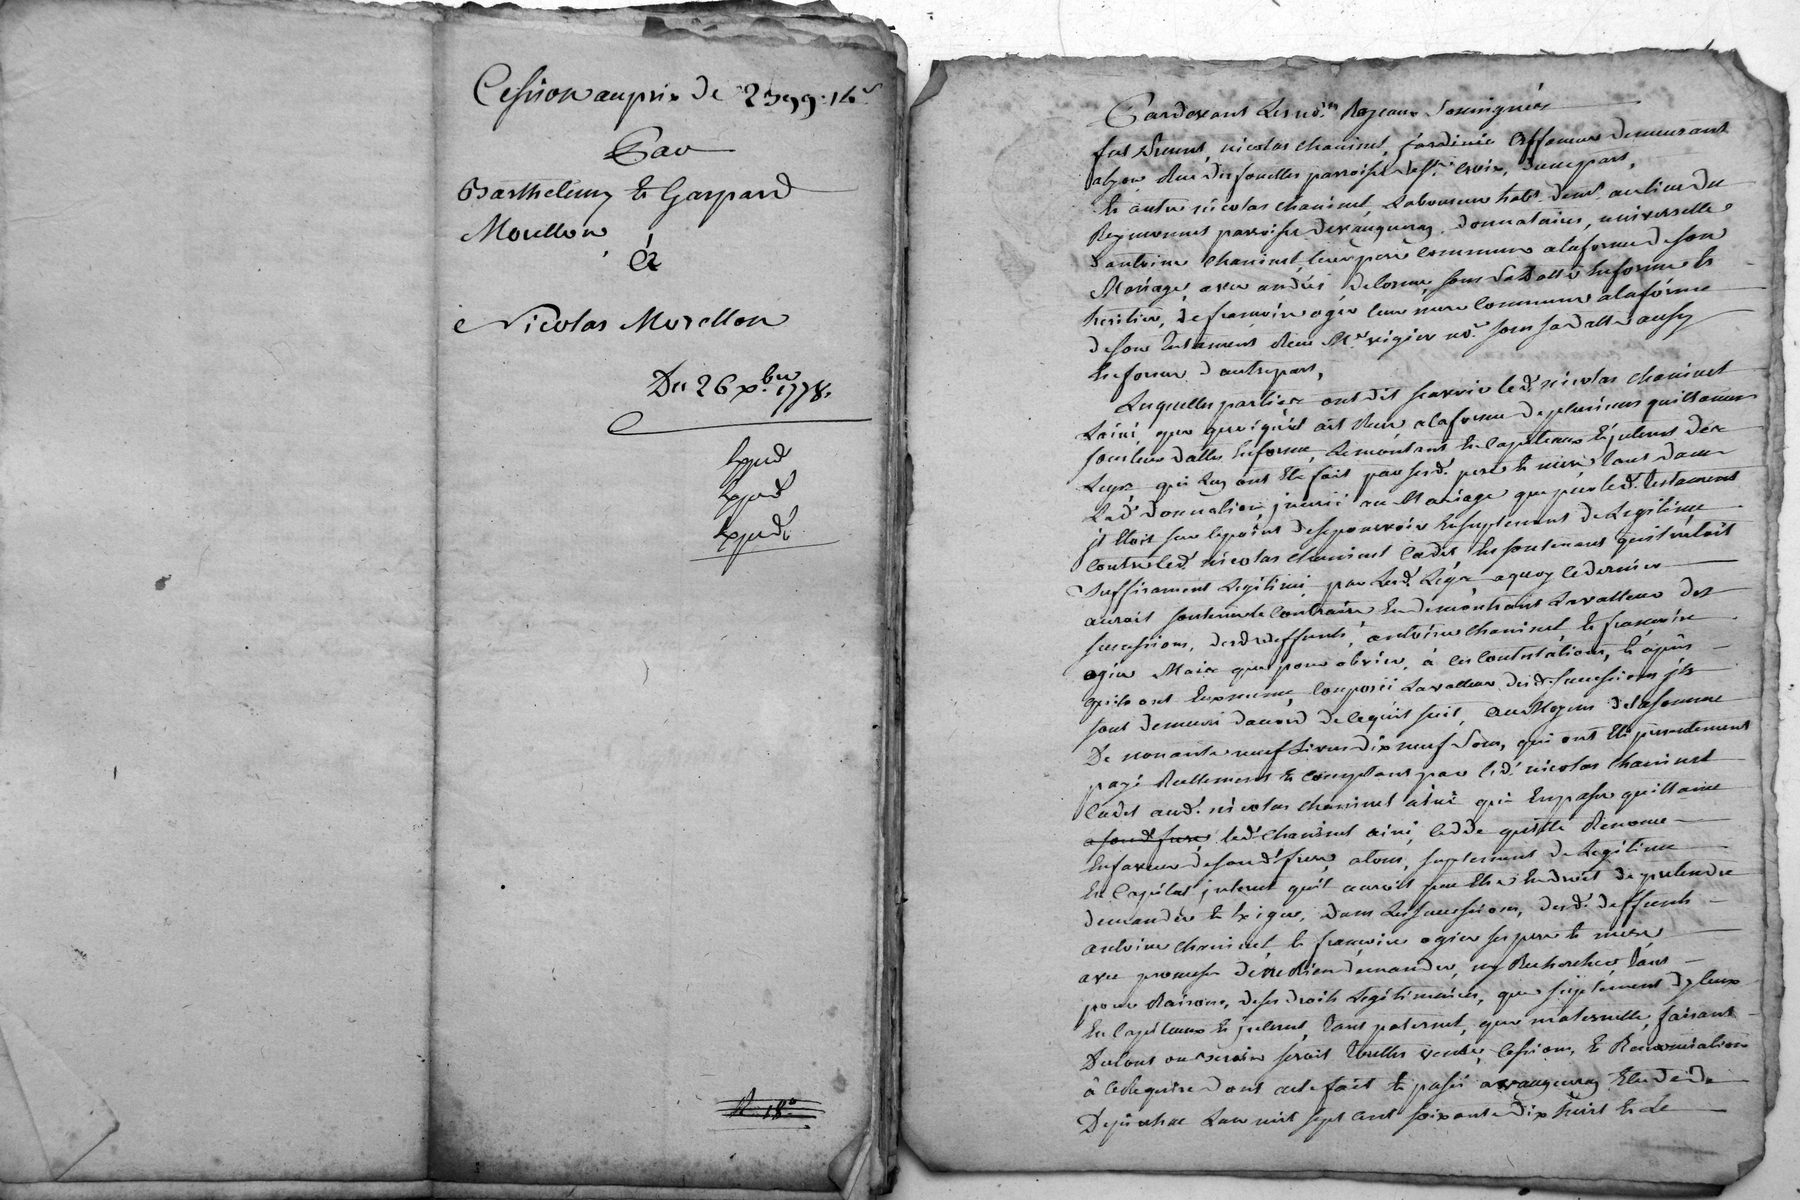 Cession au prix de 2599.14
Par
Barthelemy et Gaspard
Morellon
à
Nicolas Morellon
Du 26 xbre 1778.
Expd
Expd
Expd
R 18
Pardevant les nores Royaux Soussignés
fut present, nicolas chaninet, jardinier affaneur demeurant
alyon Rue parroisse Ste croix, d'unepart,
Et autre nicolas chaninet, Laboureur habt demt au lieu du
parroisse devaugneray, donnataire, universelle
d'antoine chaninet, leur pere commun alaforme deson
Mariage, avec delorme, sous Sa datte Enforme Et
heritier, de françoise ogier leur mere commune alaforme
deson testament Reçu Me nore sous sa datte aussy
Enforme d'autrepart,
Lesquelles parties ont dit scavoir led. nicolas chaninet
L'ainé, que quoiqu'il ait Reçu alaforme de plusieurs quittances
sous leurs dattes Enforme, Lemontant En Capitaux Et jnterest des
Legs qui luy ont Eté fait par sesd. pere Et mere tant dans
Lad. donnation jnserée au Mariage que par led. testament
jl Etoit sur lepoint desepourvoir Ensuplement de Legitime
contre led. nicolas chaninet Cadet Ensoutenant quil n'étoit
suffisament Legitimé par lesd. Legs aquoy ledernier
auroit soutenu le Contraire Endemontrant Lavalleur des
successions, desd. deffunts, antoine chaninet Et françoise
ogier Mais que pour obvier, à ces Contestations, Et après
quils ont Euxmeme, Composé Lavalleur desd. successions jls
sont demeuré d'acord de cequi suit, au Moyen delasomme
De nonante neuf Livres dix neuf Sous, qui ont Eté presentement
payé Reellement Et comptant par led. nicolas chaninet
Cadet aud. nicolas chaninet ainé qui Enpasse quittance
a sond. frere led. chaninet ainé cedde quitte Renonce
Enfaveur desond. frere, atous, suplement de Legitime
En Capital jnterest quil auroit peu Etre Endroit depretendre
demander Et Exiger, dans Les successions, desd. deffunts
antoine chaninet Et françoise ogier ses pere Et mere
avec promesse de ne Rien demander, ny Rechercher tant
pour Raison, deses droits Legitimaires, que suplement d'yceux
En Capitaux Et jnterest, tant paternel, que maternelle, faisant
Dutout telles vente, Cession, Et Renonciation
à ce Requise dont acte fait Et passé avaugneray Etude de
Dejuinhac Lan mil sept cent soixante dix huit Et Le